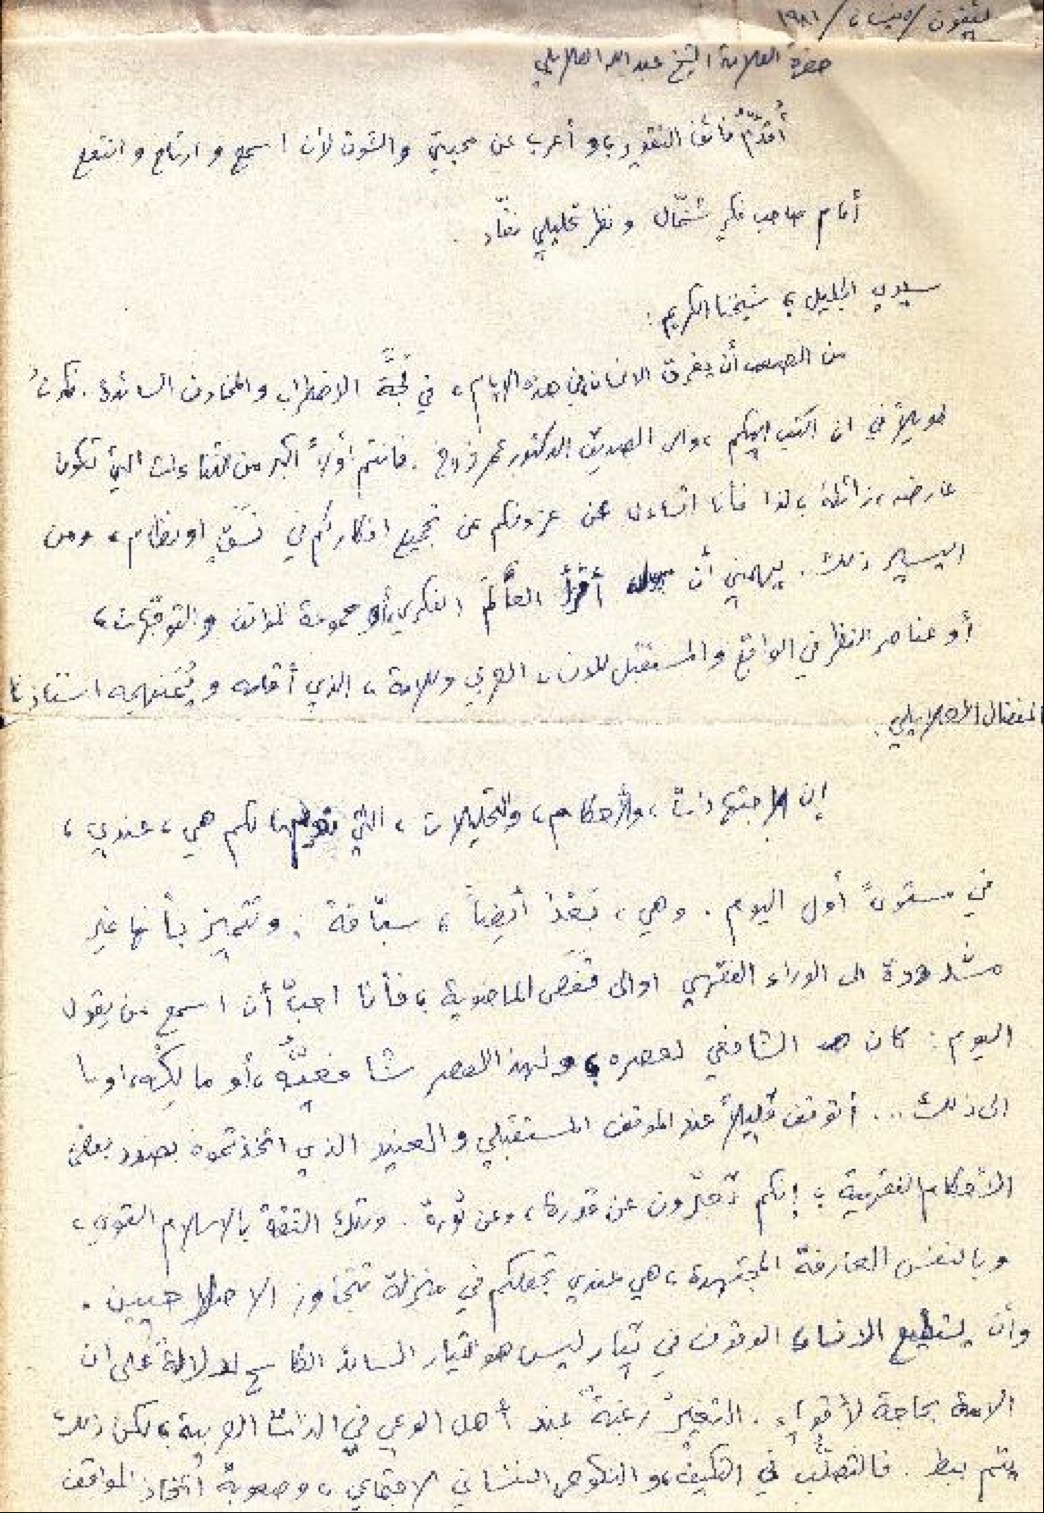 بشفون / ٥ نيسان / ١٩٨١
حضرة العلامة الشيخ عبدالله العلايلي
أُقدّمُ فائق التقدير، وأعرب عن محبتي والشوق لأن اسمع وارتاح وانتفع
أمام صاحب فكرٍ شمّال ونظر تحليلي نقّاد.
سيدي الجليل، شيخنا الكريم:
من الصعب أن يغرق الانسان، في هذه الايام، في لُجّة الاضطراب والمخاوف السائدة. فكرتُ
طويلاً في ان اكتب اليكم، والى الصديق الدكتور عمر فروخ. فانتم أولاً اكبر من التساؤلات التي تكون
عارضة، زائلة، لذا فأنا اتساءل عن عزوفكم عن تجميع افكاركم في نَسَقٍ او نظام، ومن
اليسير ذلك. يهمني أن أقرأ العالَم الفكري، أو مجموعة المواقف والتوجّهات،
أو عناصر النظر في الواقع والمستقبل للانسان العربي وللأمة، الذي أقامه ويُمَنهجه استاذنا
المفضال العلايلي.
إن الاجتهادات، والأحكام، والتحليلات، التي لكم هي، عندي،
في مستوىً أول اليوم. وهي، بَعْدُ أيضاً، سبّاقة: وتتميز بأنها غير
مشدودة الى الوراء الفقهي او الى قفص الماضوية، فأنا احبّ أن اسمع من يقول
اليوم: كان الشافعي لعصره، ولهذا العصر شافعيُّه، أو مالِكُه، او ما
الى ذلك... أتوقف قليلاً عند الموقف المستقبلي والعنيد الذي اتخذتموه بصدد بعض
الأحكام الفقهية، إنكم تُعبّرون عن قدرة، وعن ثورة. وتلك الثقة بالاسلام القوي،
وبالنفس العارفة المجتهدة، هي عندي تجعلكم في منزلة تتجاوز الاصلاحيين.
وأن يستطيع الانسان الوقوف في تيار ليس هو التيار السائد الكاسح لدلالة على ان
الامة بحاجة لأقوياء. التغيير رغبةٌ عند أهل الوعي في الذات العربية، لكن ذلك
يتم ببطء. فالتصلُّب في التكيف، والنكوص النفساني الاجتماعي، وصعوبة اتخاذ المواقف